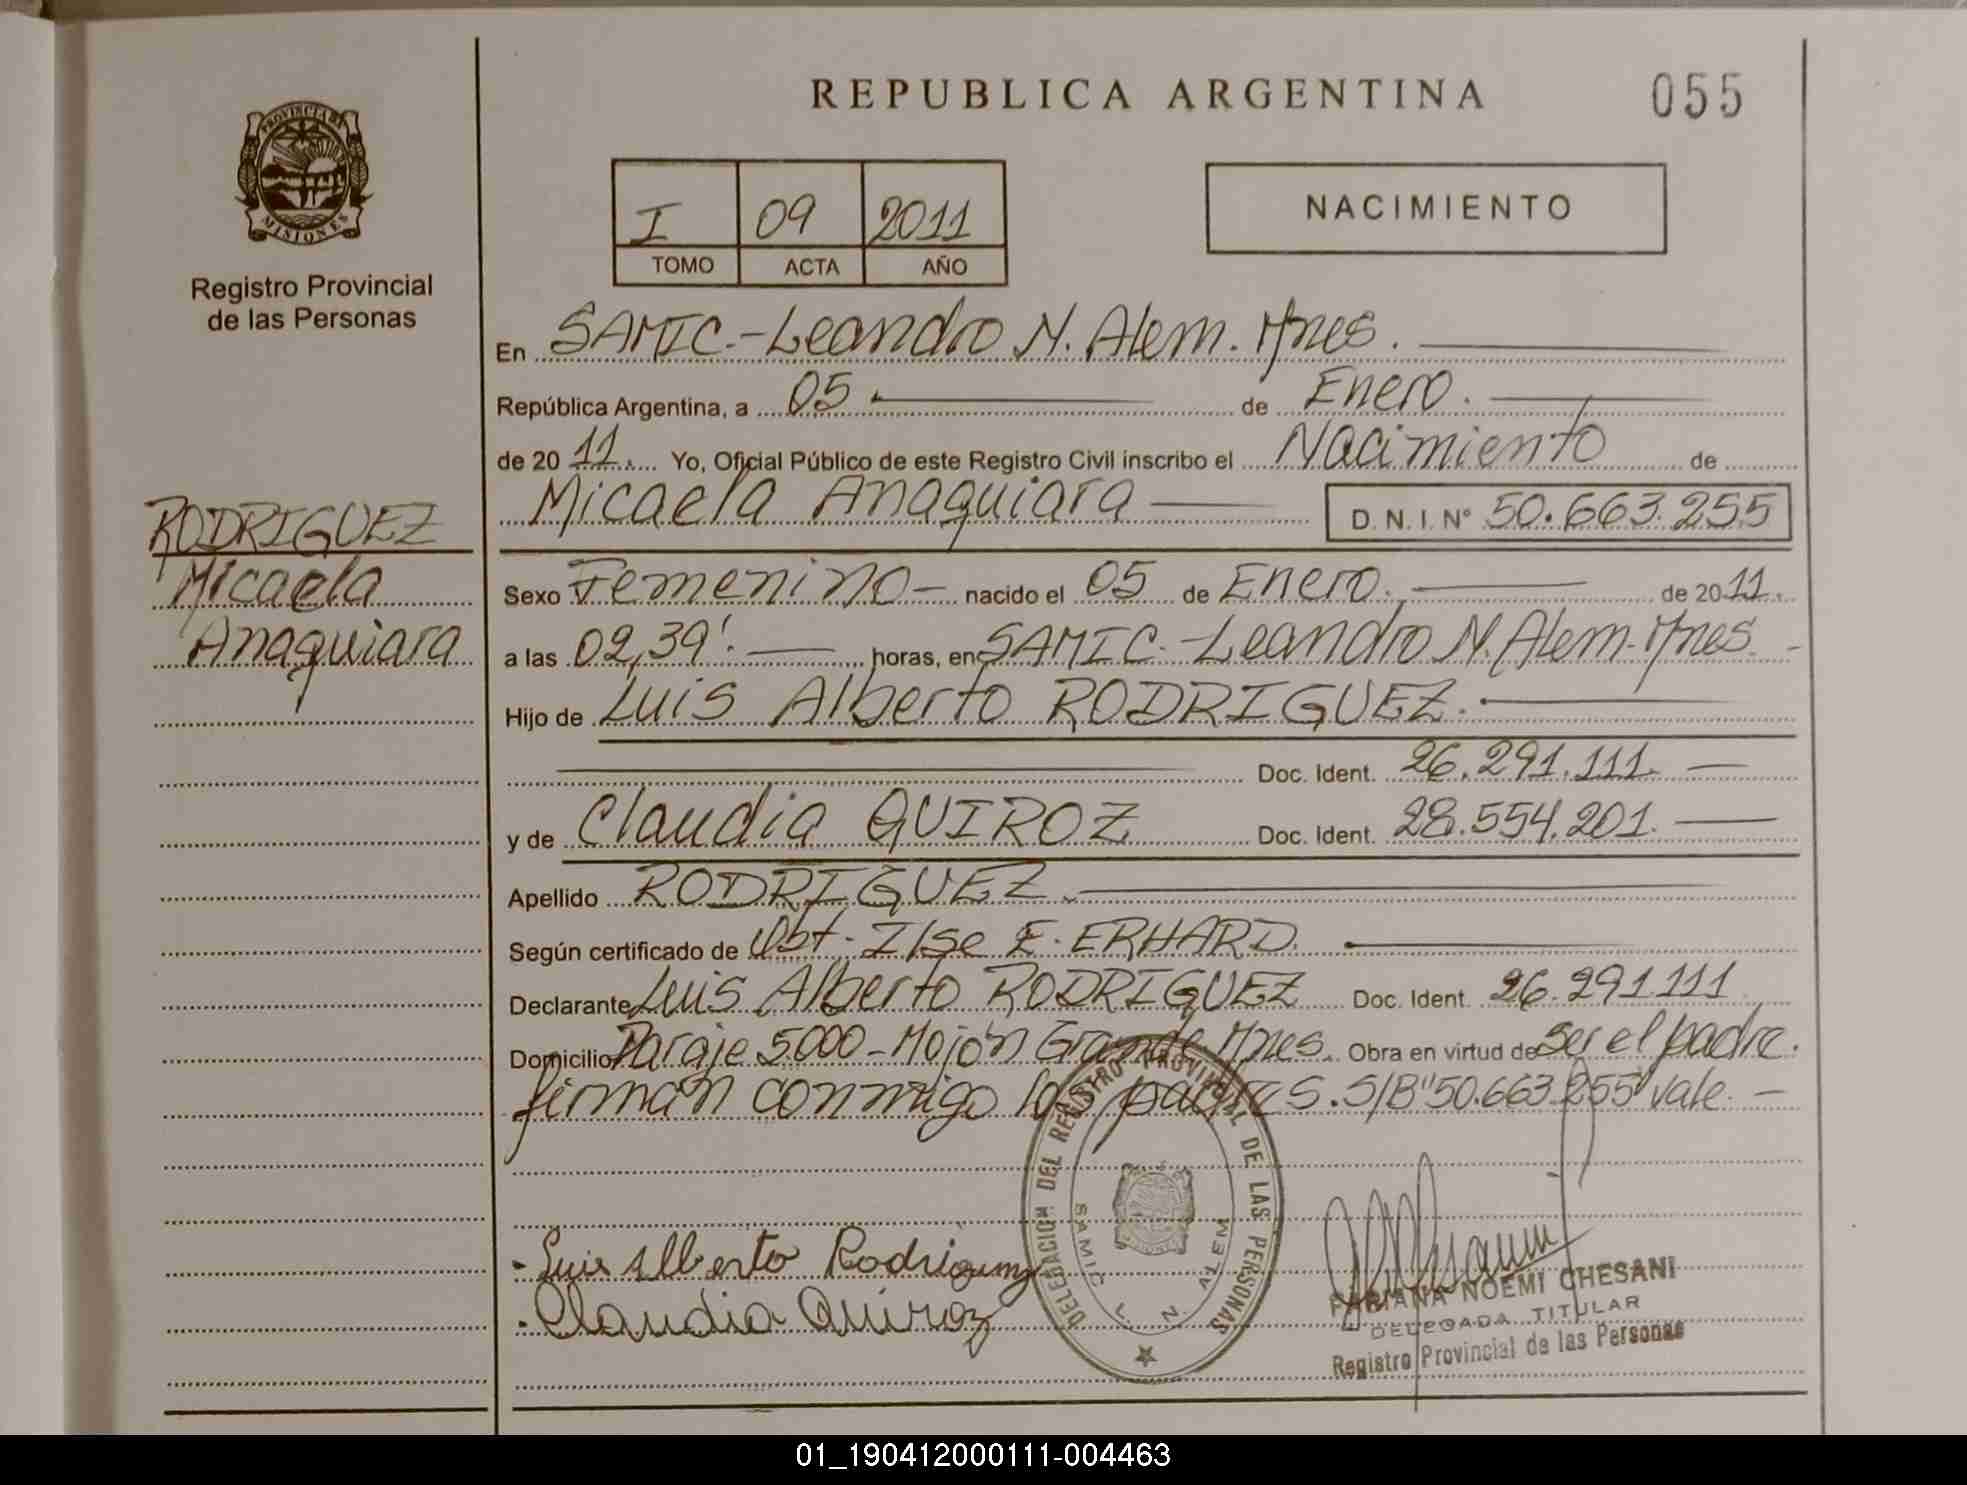 REPUBLICA ARGENTINA
055
PROVINCIA DE
MISIONES
Registro Provincial
de las Personas
I 09 2011
TOMO ACTA AÑO
NACIMIENTO
En SAMIC.-Leandro N. Alem. Mnes.
República Argentina, a 05 de Enero.
de 2011. Yo, Oficial Público de este Registro Civil inscribo el Nacimiento de
Micaela Anaquiara D.N.I. Nº 50.663.255
RODRIGUEZ
Micaela
Anaquiara
Sexo Femenino - nacido el 05 de Enero. de 2011.
a las 02,39'. horas, en SAMIC.-Leandro N. Alem-Mnes.
Hijo de Luis Alberto RODRIGUEZ.
Doc. Ident. 26.291.111.
y de Claudia QUIROZ Doc. Ident. 28.554.201.
Apellido RODRIGUEZ.
Según certificado de Obt. Ilse E. ERHARD.
Declarante Luis Alberto RODRIGUEZ Doc. Ident. 26.291.111
Domicilio Paraje 5000-Mojón Grande Mnes. Obra en virtud de ser el padre.
firman conmigo los padres. S/B "50.663.255" vale. -
DELEGACION DEL REGISTRO PROVINCIAL DE LAS PERSONAS
SAMIC L. N. ALEM
MISIONES
Luis Alberto Rodriguez
Claudia Quiroz
FABIANA NOEMI CHESANI
DELEGADA TITULAR
Registro Provincial de las Personas
01_190412000111-004463